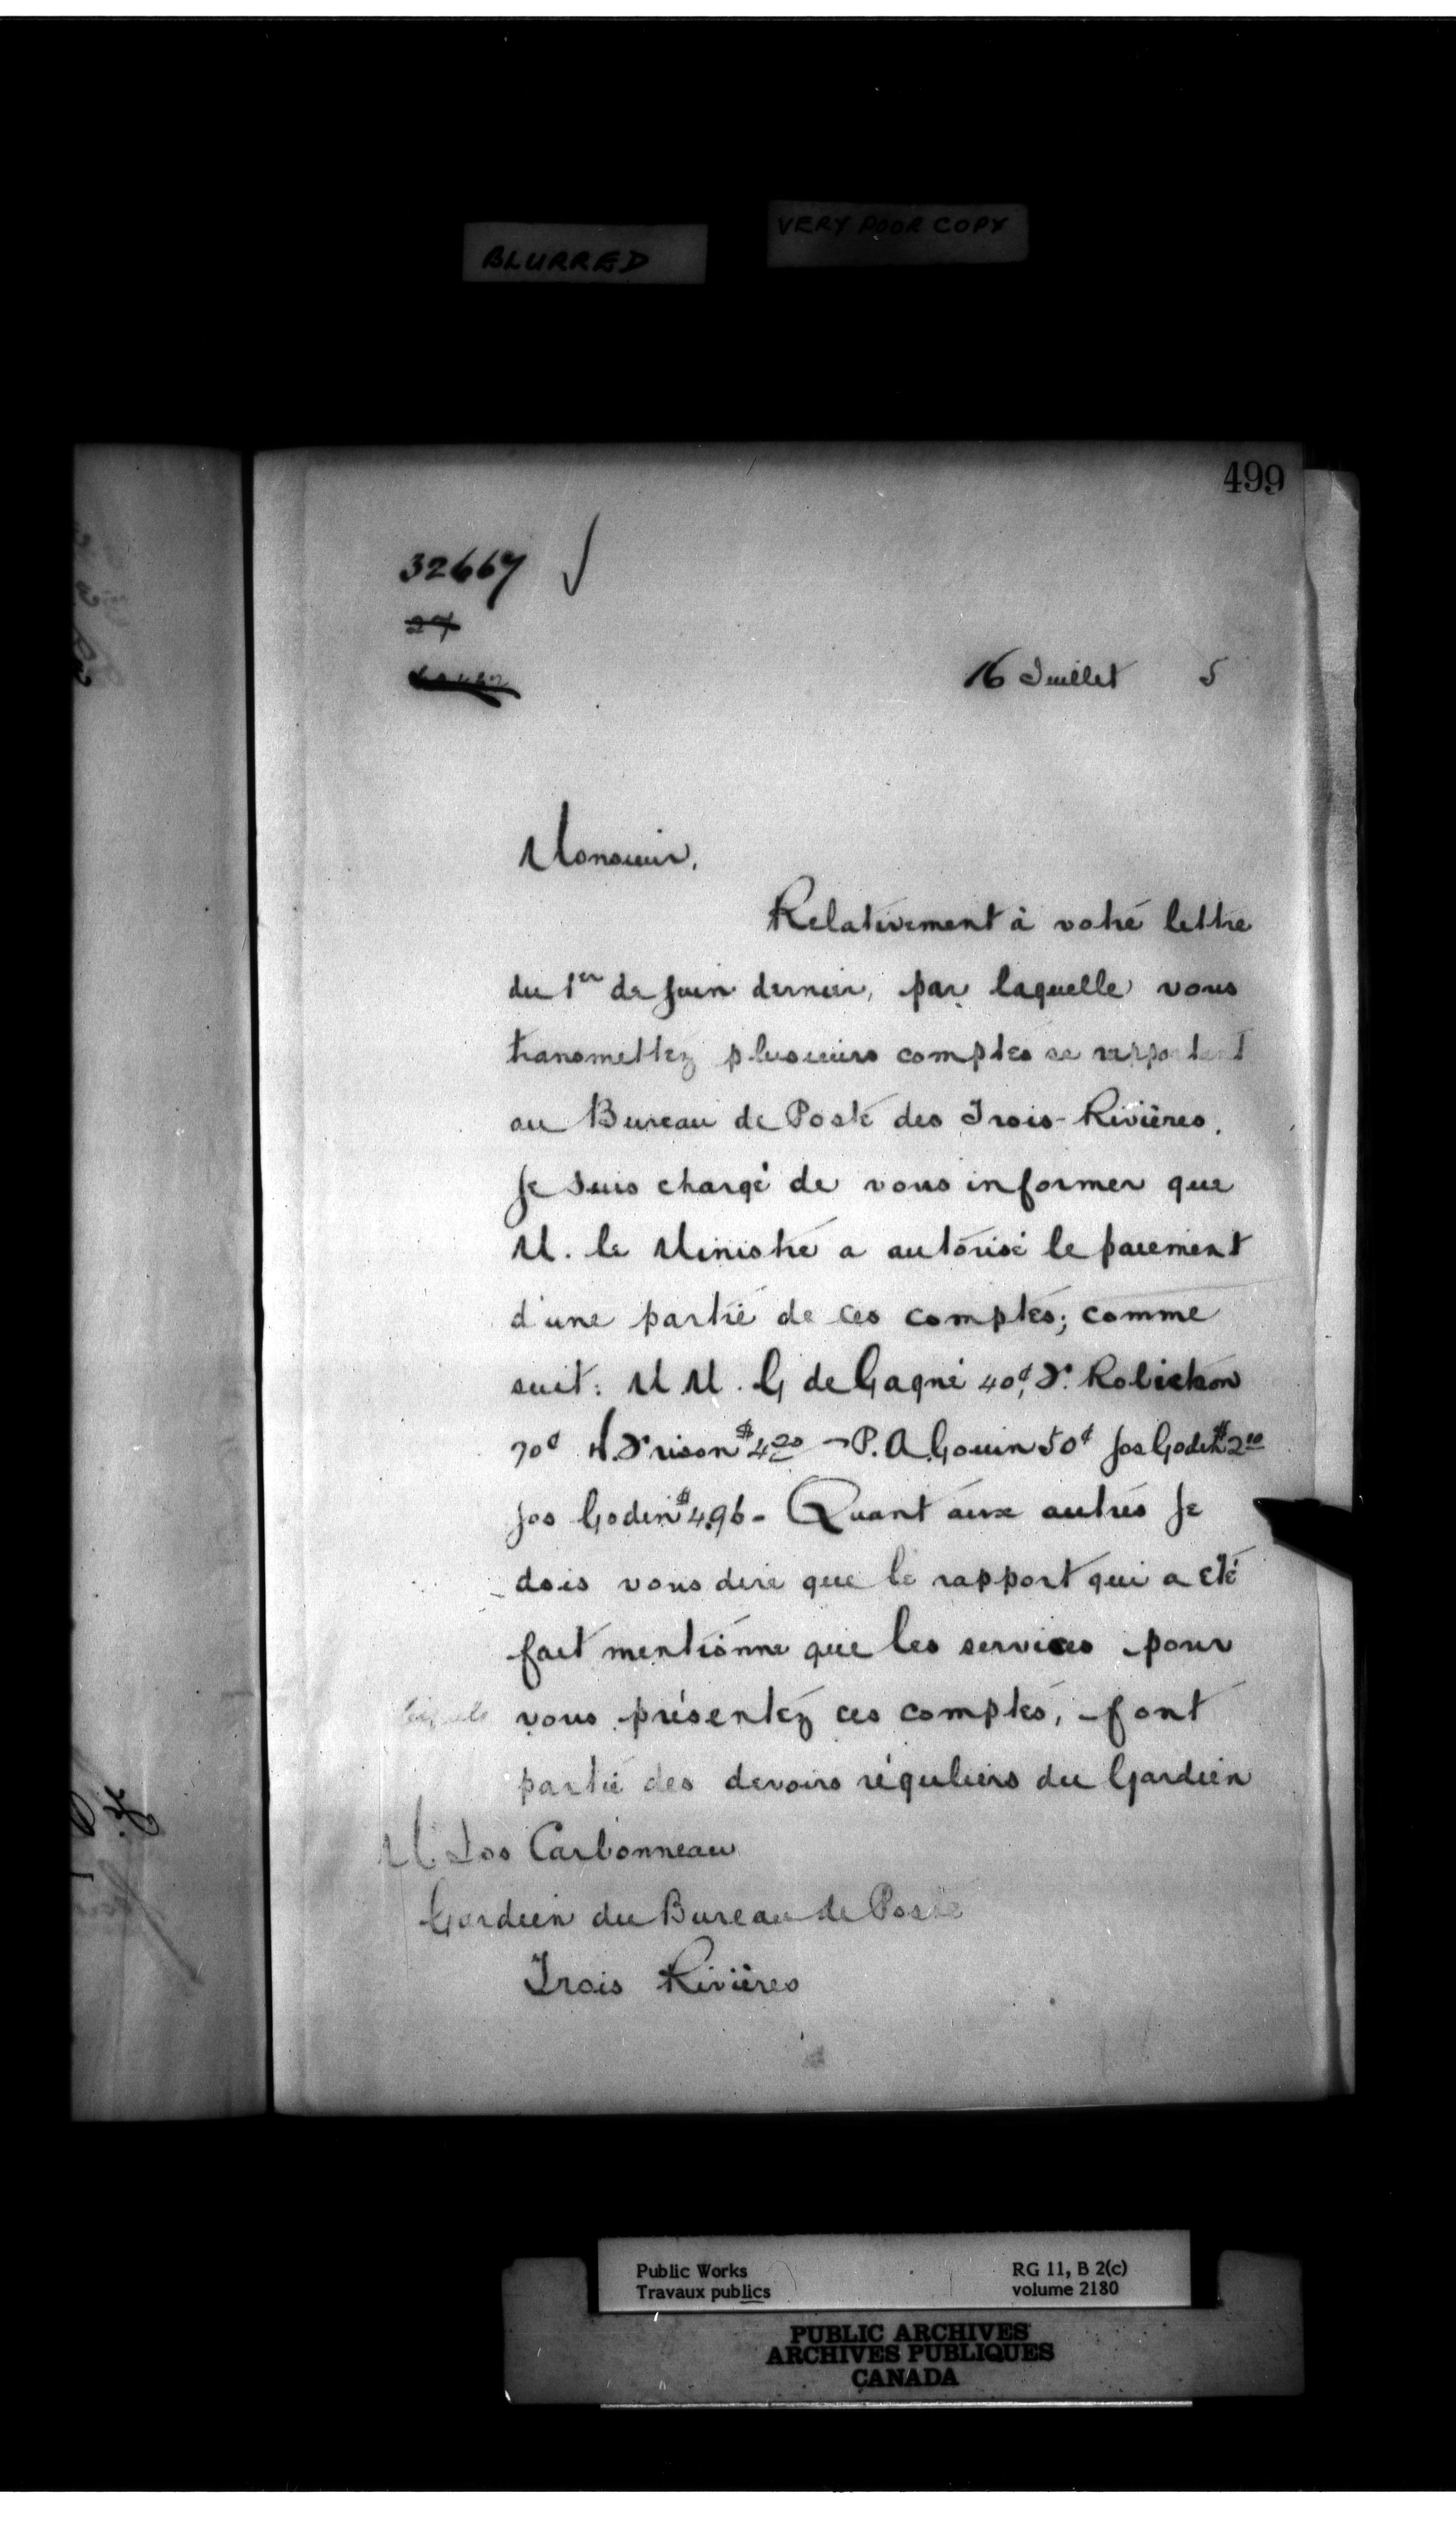 BLURRED
VERY POOR COPY
499
32667 √
27
16 Juillet 5
Monsieur,
Relativement à votre lettre
du 1er de Juin dernier, par laquelle vous
transmettez plusieurs comptes se rapportant
au Bureau de Poste des Trois-Rivières,
Je suis chargé de vous informer que
M. le Ministre a autorisé le paiement
d'une partie de ces comptes; comme
suit: M M. G de Gagné 40¢, F. Robichon
70¢ H. Frison $4.20 - P. A. Gouin 50¢ Jos Godin $2.10
Jos Godin $4.96 - Quant aux autres Je
dois vous dire que le rapport qui a été
fait mentionne que les services pour
lesquels vous présentez ces comptes, font
partie des devoirs réguliers du Gardien
M Jos Carbonneau
Gardien du Bureau de Poste
Trois Rivières
Public Works
Travaux publics
RG 11, B 2(c)
volume 2180
PUBLIC ARCHIVES
ARCHIVES PUBLIQUES
CANADA